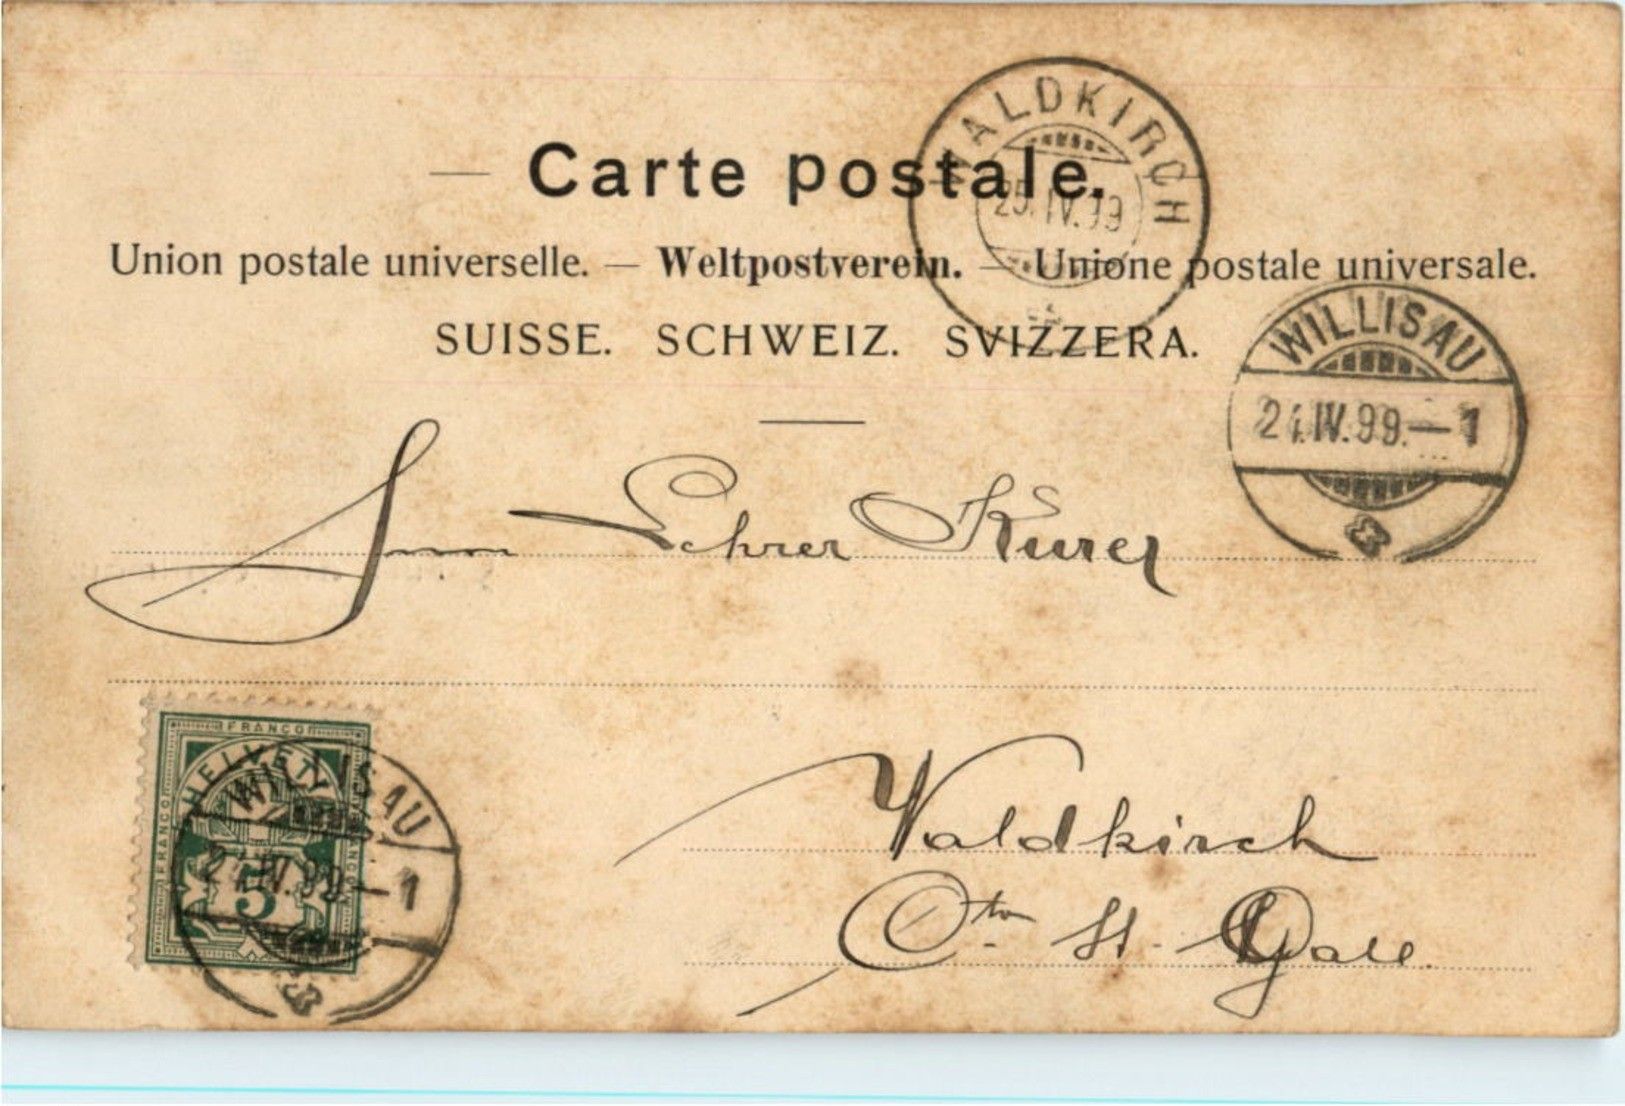 Carte postale.
WALDKIRCH
25.IV.99
Union postale universelle. — Weltpostverein. — Unione postale universale.
SUISSE. SCHWEIZ. SVIZZERA.
WILLISAU
24.IV.99.—1
Lehrer Kurer
Waldkirch
Ctn. St. Gall.
FRANCO
FRANCO
FRANCO
HELVETIA
5
WILLISAU
24.IV.99.—1